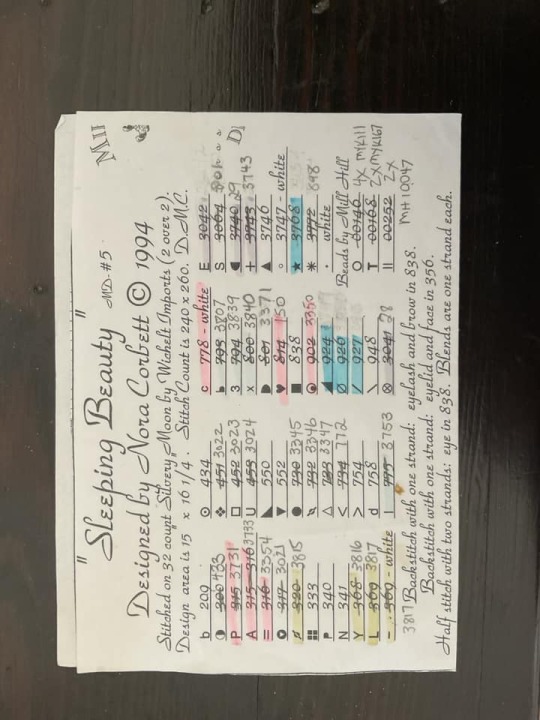 MII
"Sleeping Beauty" MD #5
Designed by Nora Corbett © 1994
Stitched on 32 count Silvery Moon by Wichelt Imports (2 over 2).
Design area is 15 x 16 1/4. Stitch Count is 240 x 260. D.M.C.
b 200
300 433
P 315 3731
A 315-316 3733
= 316 3354
317 3021
ø 320 3815
333
P 340
N 341
Y 368 3816
L 369 3817
- 369 - white
3817
434
451 3022
452 3023
U 453 3024
550
552
730 3345
732 3346
733 3347
< 734 772
> 754
d 758
| 775 3753
c 778 - white
793 3807
3 794 3839
x 800 3840
801 3371
814 150
838
902 3350
924
926
927
\ 948
3041 28
E 3042
S 3064
3740 29
+ 3743 3743
3746
3747 - white
3768
3772 898
· white
Beads by Mill Hill
O 00146 4x
T 00168 2x
|| 00252 2x
MH10047
Backstitch with one strand: eyelash and brow in 838.
Backstitch with one strand: eyelid and face in 356.
Half stitch with two strands: eye in 838. Blends are one strand each.